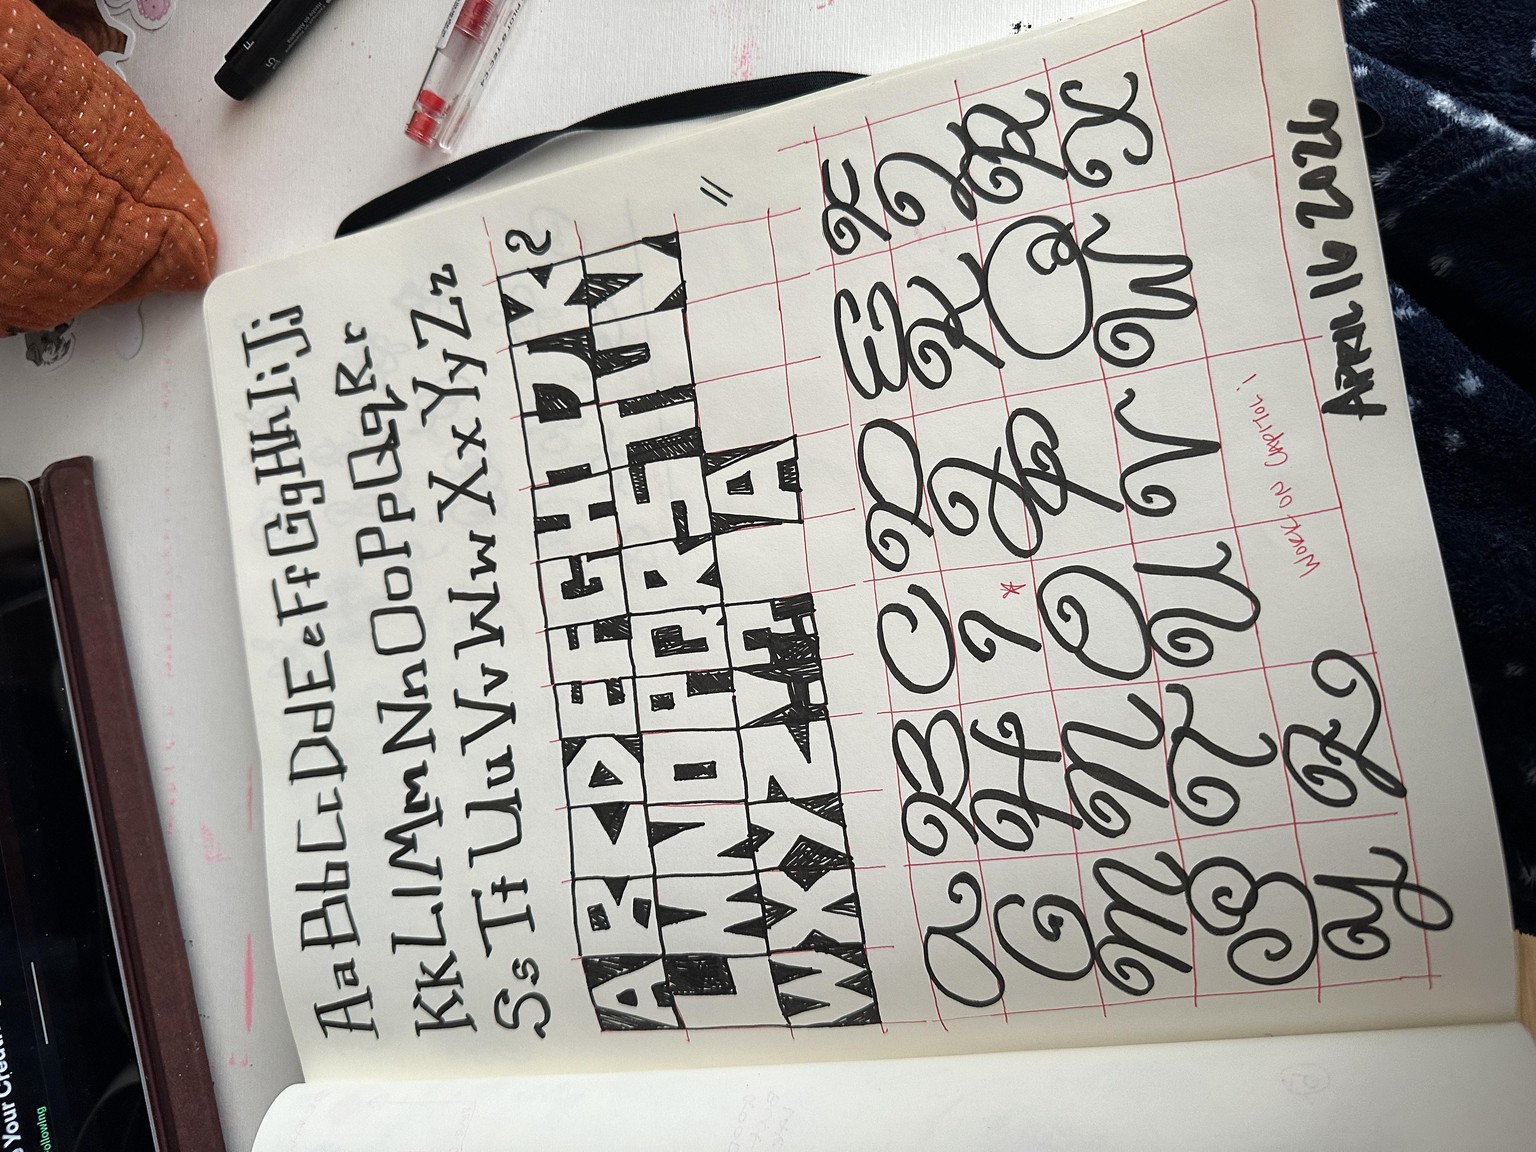 AaBbCcDdEeFfGgHhIiJj
KkLlMmNnOoPpQqRr
SsTtUuVvWwXxYyZz
ABCDEFGHIJK
LMNOPQRSTUV
WXYZ
A
A B C D E F
G H I J K L
M N O P Q R
S T U V W X
Y Z
WORK ON CAPITOL I
APRIL 16 2026
Your Creati
ollowing
PILOT B-TEC-C4
F